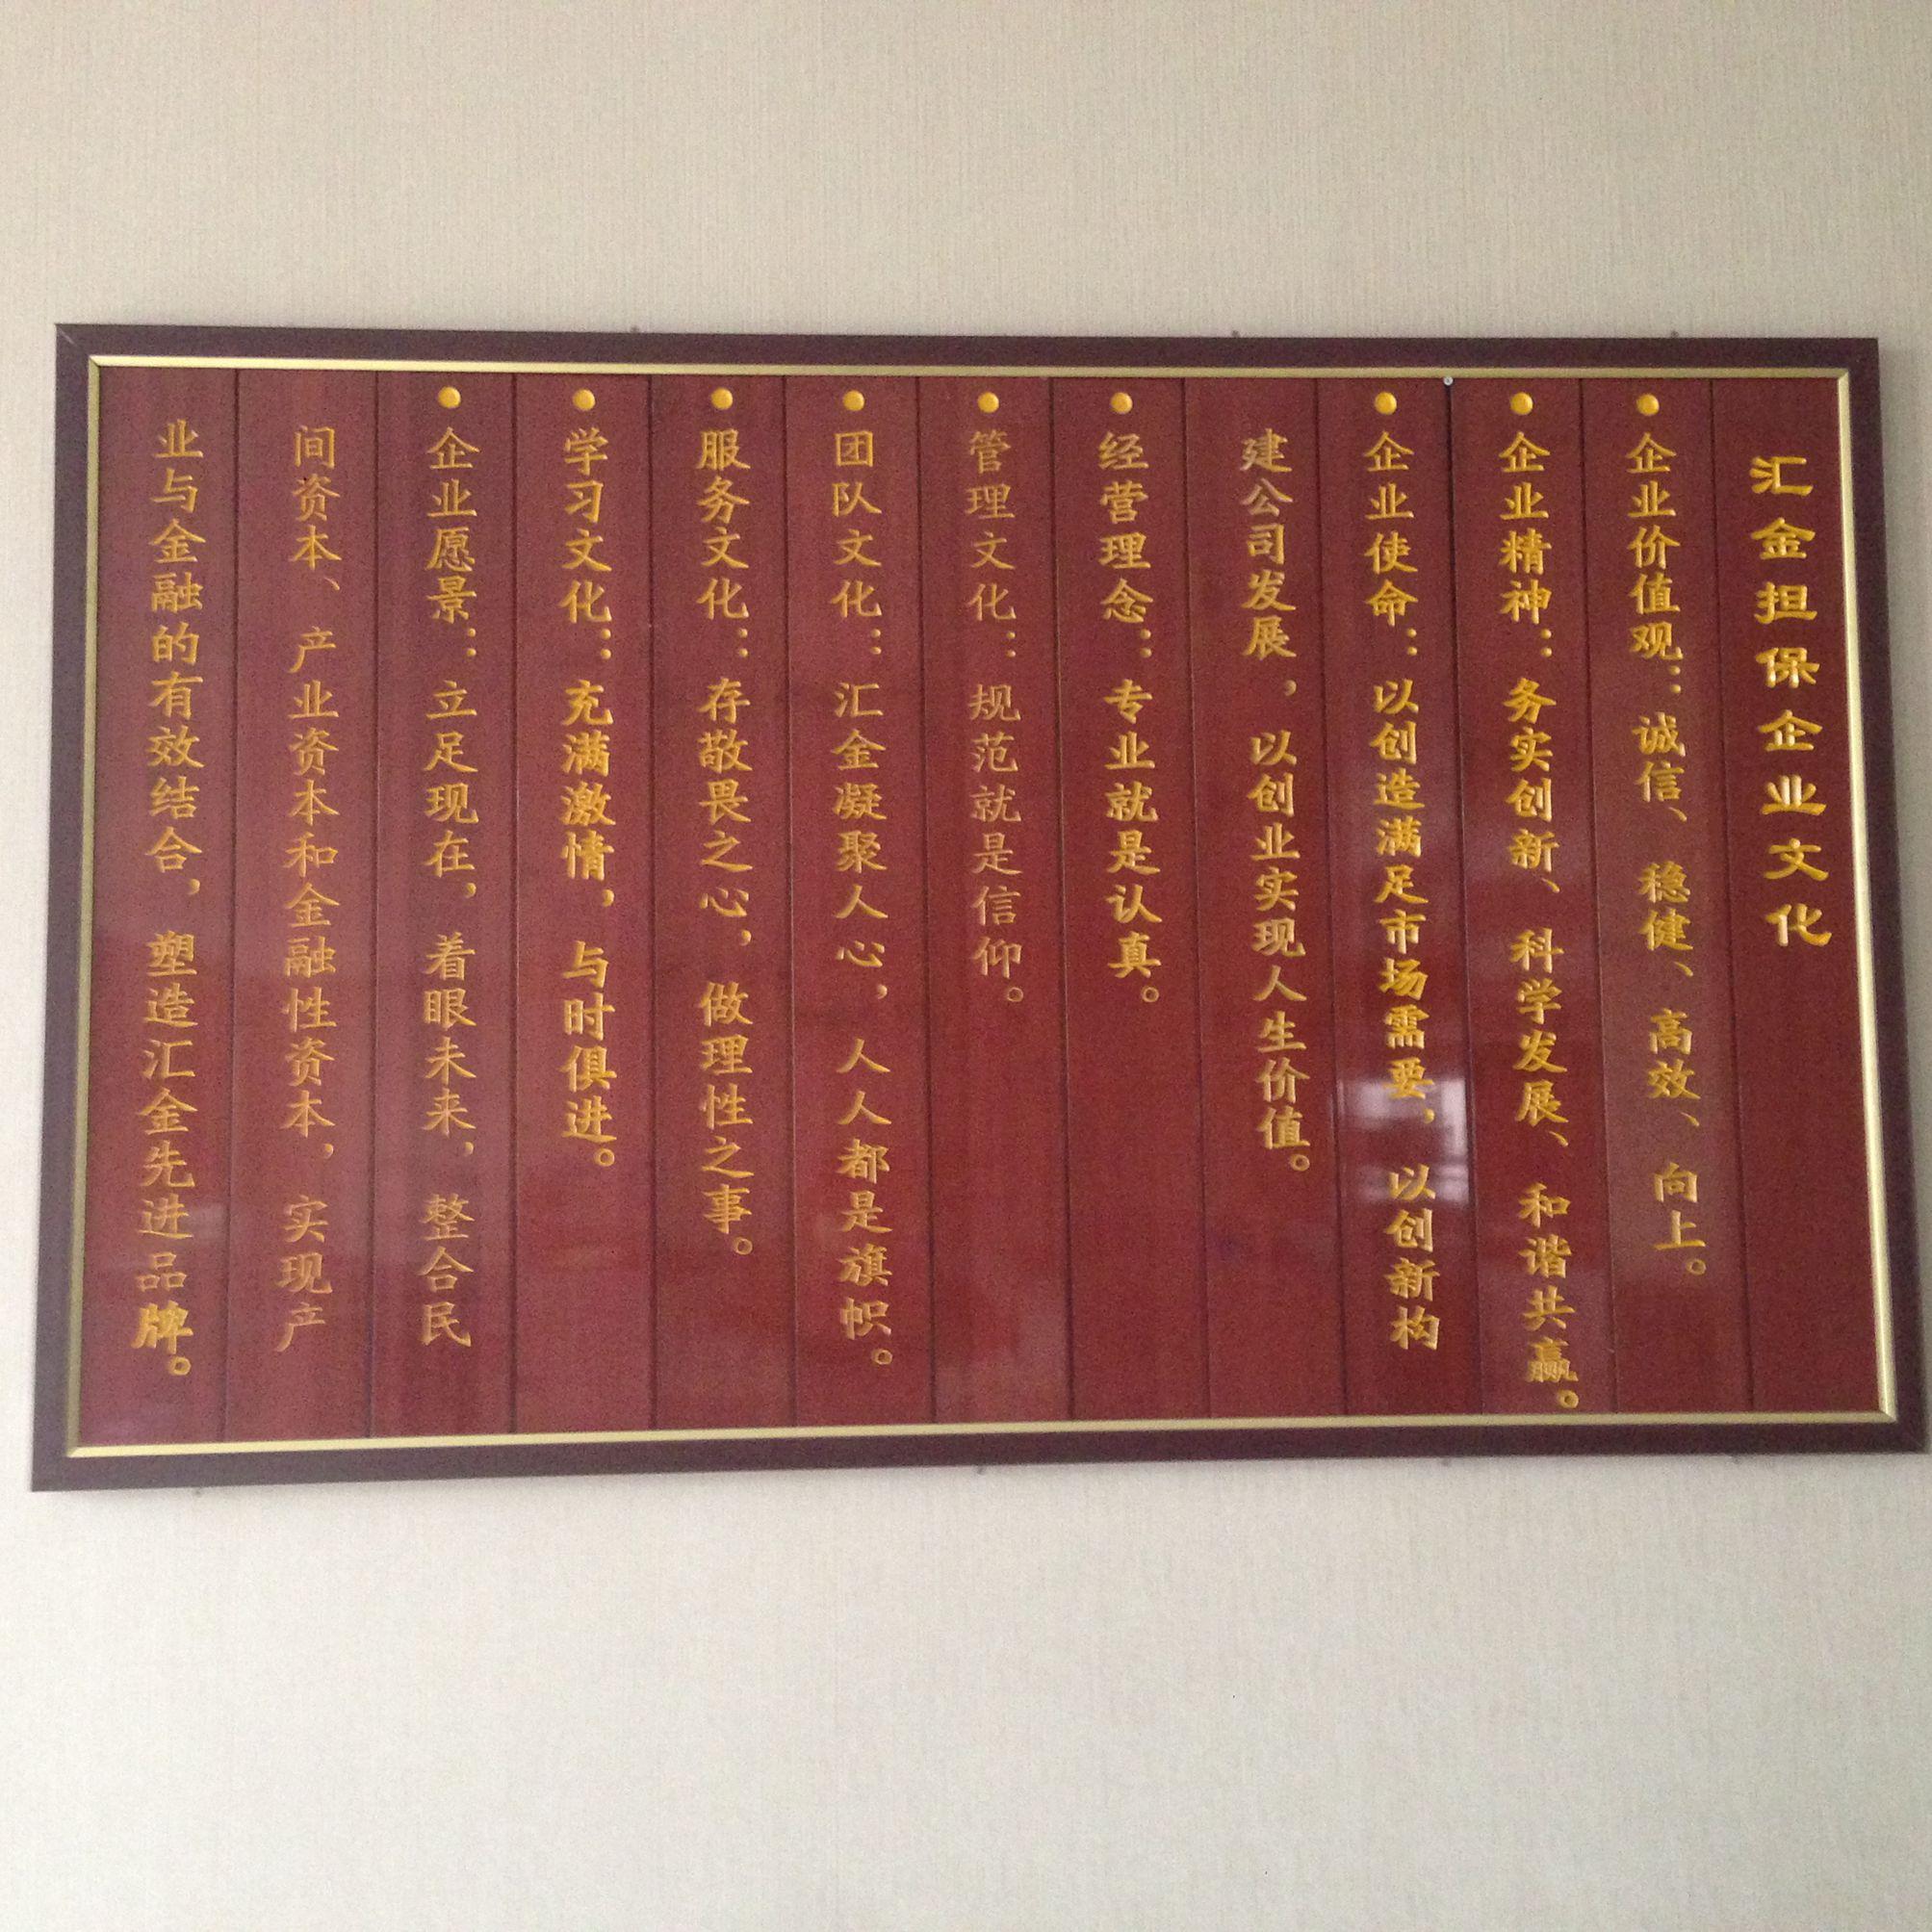 汇金担保企业文化
●企业价值观：诚信、稳健、高效、向上。
●企业精神：务实创新、科学发展、和谐共赢。
●企业使命：以创造满足市场需要，以创新构
建公司发展，以创业实现人生价值。
●经营理念：专业就是认真。
●管理文化：规范就是信仰。
●团队文化：汇金凝聚人心，人人都是旗帜。
●服务文化：存敬畏之心，做理性之事。
●学习文化：充满激情，与时俱进。
●企业愿景：立足现在，着眼未来，整合民
间资本、产业资本和金融性资本，实现产
业与金融的有效结合，塑造汇金先进品牌。